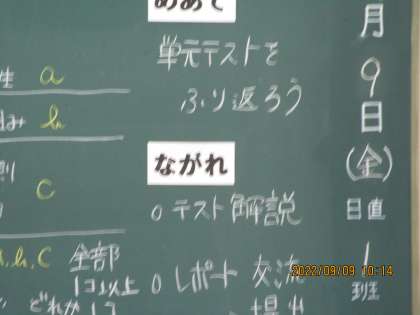 めあて
単元テストを
ふり返ろう
ながれ
○テスト解説
○レポート交流
月
9
日
(金)
日直
1
班
a
b
c
a,b,c 全部
1コ以上
どれか
2022/09/09 10:14